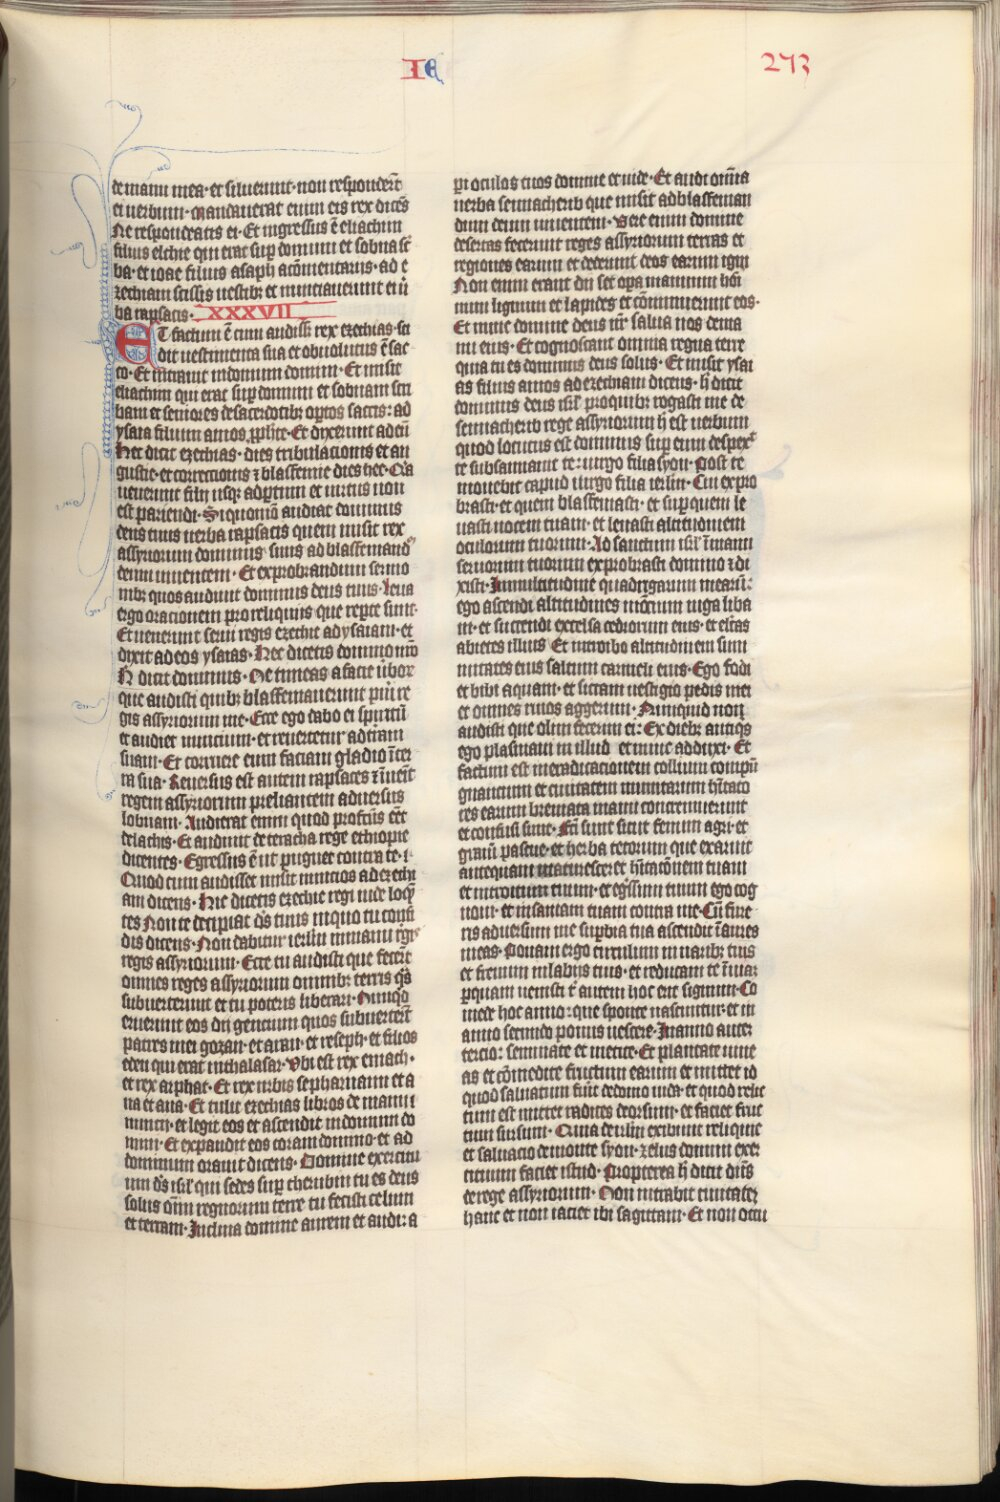 IE
273
de manu mea· et siluerunt· non respondert̄
ei uerbum· Mandauerat enim eis rex dicēs
Ne respondeatis ei· Et ingressus ē eliachim
filius elchie qui erat sup domum et sobna sc̄
ba· et ioae filius asaph acōmentarus· ad e
zechiam scissis uestibꝫ et nunciauerunt ei ū
ba rapsacis· XXXVII
ET factum ē cum audissꝫ rex ezechias· sci
dit uestimenta sua et obuolutus ē sac
co· Et intrauit in domum domini· Et misit
eliachim qui erat sup domum et sobnam scri
bam et seniores de sacerdotibꝫ optos saccis: ad
ysaia filium amos ꝓphꝫte· Et dixerunt ad eū
Hec dicit ezechias· dies tribulacionis et an
gustie· et correctionis ꝫ blasfemie dies hec· Q̄a
uenerunt filii usqꝫ ad ꝑtum et uirtus non
est pariendi· Si quoniā audiat dominus
deus tuus uerba rapsacis quem misit rex
assyriorum dominus suus ad blasfemand̄
deum uiuentem· Et exprobrandum sermo
nibꝫ quos audiuit dominus deus tuus· Leua
ergo orationem pro reliquiis que reꝑte sunt·
Et uenerunt serui regis ezechie ad ysaiam· et
dixit ad eos ysaias· Hec dicetis domino ur̄o
H̄ dicit dominus· Ne timeas a facie ūbor̄
que audisti quibꝫ blasfemauerunt pu͛i re
gis assyriorum me· Ecce ego dabo ei spiritū
et audiet nuncium· et reuertetur ad trām
suam· Et corruere eum faciam gladio ī ter
ra sua· Reuersus est autem rapsaces ꝫ īuēit
regem assyriorum preliantem aduersus
lobnam· Audierat enim quod profctūs eēt
de lachis· Et audiuit de teracha rege ethiopie
dicentes· Egressus ē ut pugnet contra te· ꝫ·
Quod cum audisset misit nuncios ad ezechi
am dicens· Hec dicetis ezechie regi iude loqꝫ
tes Non te decipiat d̄s tuus in quo tu confi
dis dicens· Non dabitur ierl̄m in manu rgis
regis assyriorum· Ecce tu audisti que fecer̄t
omnes reges assyriorum omnibꝫ terris q̄s
subuerterunt et tu poteris liberari· Nunqd̄
eruerunt eos dii gencium quos subuertert̄
patres mei gozan· et aran· et reseph· et filios
eden qui erat in thalasar· Vbi est rex emach·
et rex arphat· Et rex urbis sepharuaim et a
na et aua· Et tulit ezechias libros de manu
nuncii· et legit eos et ascendit in domum do
mini· Et expandit eos coram domino· et ad
dominum orauit dicens· Domine exercitu
um d̄s isr̄l qui sedes sup cherubin tu es deus
solus om̄i regnorum terre tu fecisti celum
et terram· Inclina domine aurem et audi: a
ꝑi oculos tuos domine et uide· Et audi omīa
uerba sennacherib que misit ad blasfeman
dum deum uiuentem· Vere enim domine
desertas fecerunt reges assyriorum terras et
regiones earum et dederunt deos earum igni
Non enim erant dii set opa manuum hōi
num lignum et lapides et cōminuerunt eos·
Et nunc domine deus nr̄ salua nos de ma
nu eius· Et cognoscant omnia regna terre
quia tu es dominus deus solus· Et misit ysai
as filius amos ad ezechiam dicens· h̄ dicit
dominus deus isr̄l· pro quibꝫ rogasti me de
sennacherib rege assyriorum h̄ est uerbum
quod locutus est dominus sup eum despex̄
te subsannauit te: uirgo filia syon· Post te
mouebit capud uirgo filia ierl̄m· Cui expro
brasti· et quem blasfemasti· et sup quem le
uasti uocem tuam· et leuasti altitudinem
oculorum tuorum· Ad sanctum isr̄l· ī manu
seruorum tuorum exprobrasti domino ꝫ di
xisti· In multitudine quadrigarum mearū:
ego ascendi altitudines montium iuga liba
ni· et succendi excelsa cedrorum eius· et elc̄tas
abietes illius Et introibo altitudinem sum
mitates eius saltum carmeli eius· Ego fodi
et bibi aquam· et siccam uestigio pedis mei
et omnes riuos aggerum· Numquid non
audisti que olim fecerim ei: Ex diebꝫ antiqs
ego plasmaui illud et nunc adduxi· Et
factum est in eradicacionem collium compū
gnancium et ciuitatem munitarum hīt̄aco
res earum breuiata manu contremuerunt
et confusi sunt· Fc̄i sunt sicut fenum agri· et
gramen pascue· et herba tectorum que exaruit
antequam maturesceret hītac̄onem tuam
et introitum tuum· et egr̄ssum tuum ego cog
noui· et insaniam tuam contra me· Cū fure
ris aduersum me supbia tua ascendit ī aures
meas· Ponam ergo circulum in naribꝫ tuis
et frenum in labiis tuis· et reducam te ī uiaꝫ
ꝑ quam uenisti ꝫ autem hoc erit signum· Co
mede hoc anno: que sponte nascuntur· et in
anno secundo pomis uescere· In anno auteꝫ
tercio: seminate et metite· Et plantate uine
as et cōmedite fructum earum et mittet id
quod saluatum fuit̄ de domo iuda· et quod relic
tum est mittet radices deorsum· et faciet fruc
tum sursum· Quia de irl̄m exibunt reliquie
et saluacio de monte syon· zelus domini exer
cituum faciet istud· Propterea h̄ dicit dn̄s
de rege assyriorum· Non intrabit ciuitateꝫ
hanc et non iaciet ibi sagittam· Et non occu